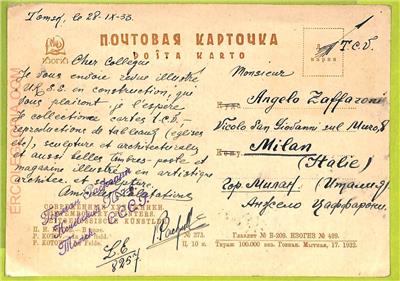 Tomsk, le 28-IX-33.
ИЗОГИЗ
ПОЧТОВАЯ КАРТОЧКА
POŜTA KARTO
марки
T.C.V.
Cher Collègue
Je Vous envoie revue illustré
U.R.S.S. en construction, qui
Vous plairont, je l'espère.
Je collectionne cartes T.C.V.-
reproductions de tableaux (églises
etc), sculpture et architecturales
et aussi telles timbres-poste et
magazine illustré en artistique
architec. et sculpture.
Monsieur
Angelo Zaffaroni
Vicolo San Giovanni sul Muro, 8
Milan
(Italie)
гор. Милан (Италия)
Анжело Цаффарони.
Томск
С.С.С.Р.
СОВРЕМЕННЫЕ ХУДОЖНИКИ
L.E.
8257
№ 273.
Ц. 10 к.
Главлит № В-209. ИЗОГИЗ № 499.
Тираж 100.000 экз. Гознак. Мытная, 17. 1932.